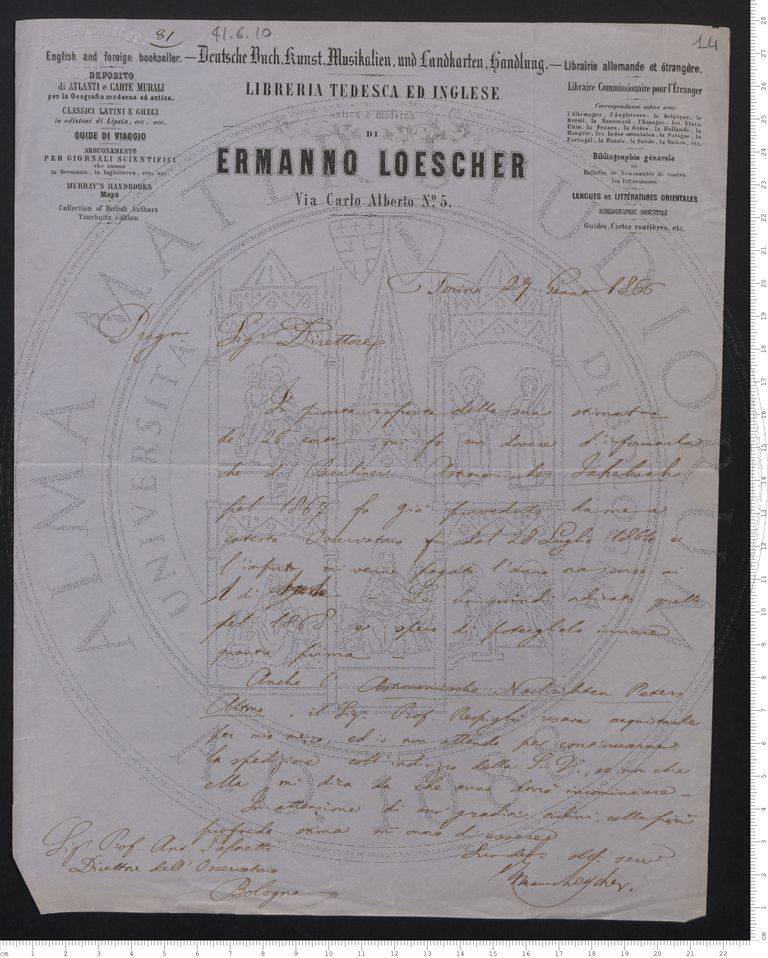 81
41.6.10
14
English and foreign bookseller. — Deutsche Buch, Kunst, Musikalien, und Landkarten, Handlung. — Librairie allemande et étrangère.
DEPOSITO
di ATLANTI e CARTE MURALI
per la Geografia moderna ed antica.
CLASSICI LATINI E GRECI
in edizioni di Lipsia, ecc. ecc.
GUIDE DI VIAGGIO
ABBUONAMENTO
PER GIORNALI SCIENTIFICI
che escono
in Germania, in Inghilterra, ecc. ecc.
MURRAY'S HANDBOOKS
Maps
Collection of British Authors
Tauchnitz edition
LIBRERIA TEDESCA ED INGLESE
antica e moderna
DI
ERMANNO LOESCHER
Via Carlo Alberto No. 5.
Libraire Commissionaire pour l'Étranger
Correspondance active avec
l'Allemagne, l'Angleterre, la Belgique, le
Brésil, la Danemark, l'Espagne, les États
Unis, la France, la Grèce, la Hollande, la
Hongrie, les Indes orientales, la Pologne, le
Portugal, la Russie, la Suède, la Suisse, etc.
Bibliographie générale
ou
Bulletin de Nouveautés de toutes
les littératures
LANGUES et LITTÉRATURES ORIENTALES
BIBLIOGRAPHIE ORIENTALE
Guides, Cartes routières, etc.
Torino 27 Genno 1866
Pregmo Sigr Direttore
In pronta risposta della sua stimata
de' 26 corr. mi fo un dovere d'informarla
che il Berliner Astronomisches Jahrbuch
pel 1867 fu già provveduto da me a
cotesto Osservatorio fin dal 28 Luglio 1864 e
l'importo mi venne pagato l'anno ora scorso ai
1 di
pel 1868 e spero di poterglielo inviare
quanto prima —
Anche l' Astronomische Nachrichten Peters
Altona, il Sigr Prof. Respighi usava acquistarle
per mio mezzo, ed io non attendo per continuarne
la spedizione coll' indirizzo della S. V., se non che
ella mi dica da che anno dovrò incominciare —
In attenzione di suoi graditi ordini, colla più
profonda stima mi onoro d'essere
Suo devmo obb. serv
Ermanno Loescher
Sigr Prof. Ano Palagi
Direttore dell' Osservatorio
Bologna
ALMA MATER STUDIORUM
UNIVERSITÀ DI BOLOGNA
A.D. 1088